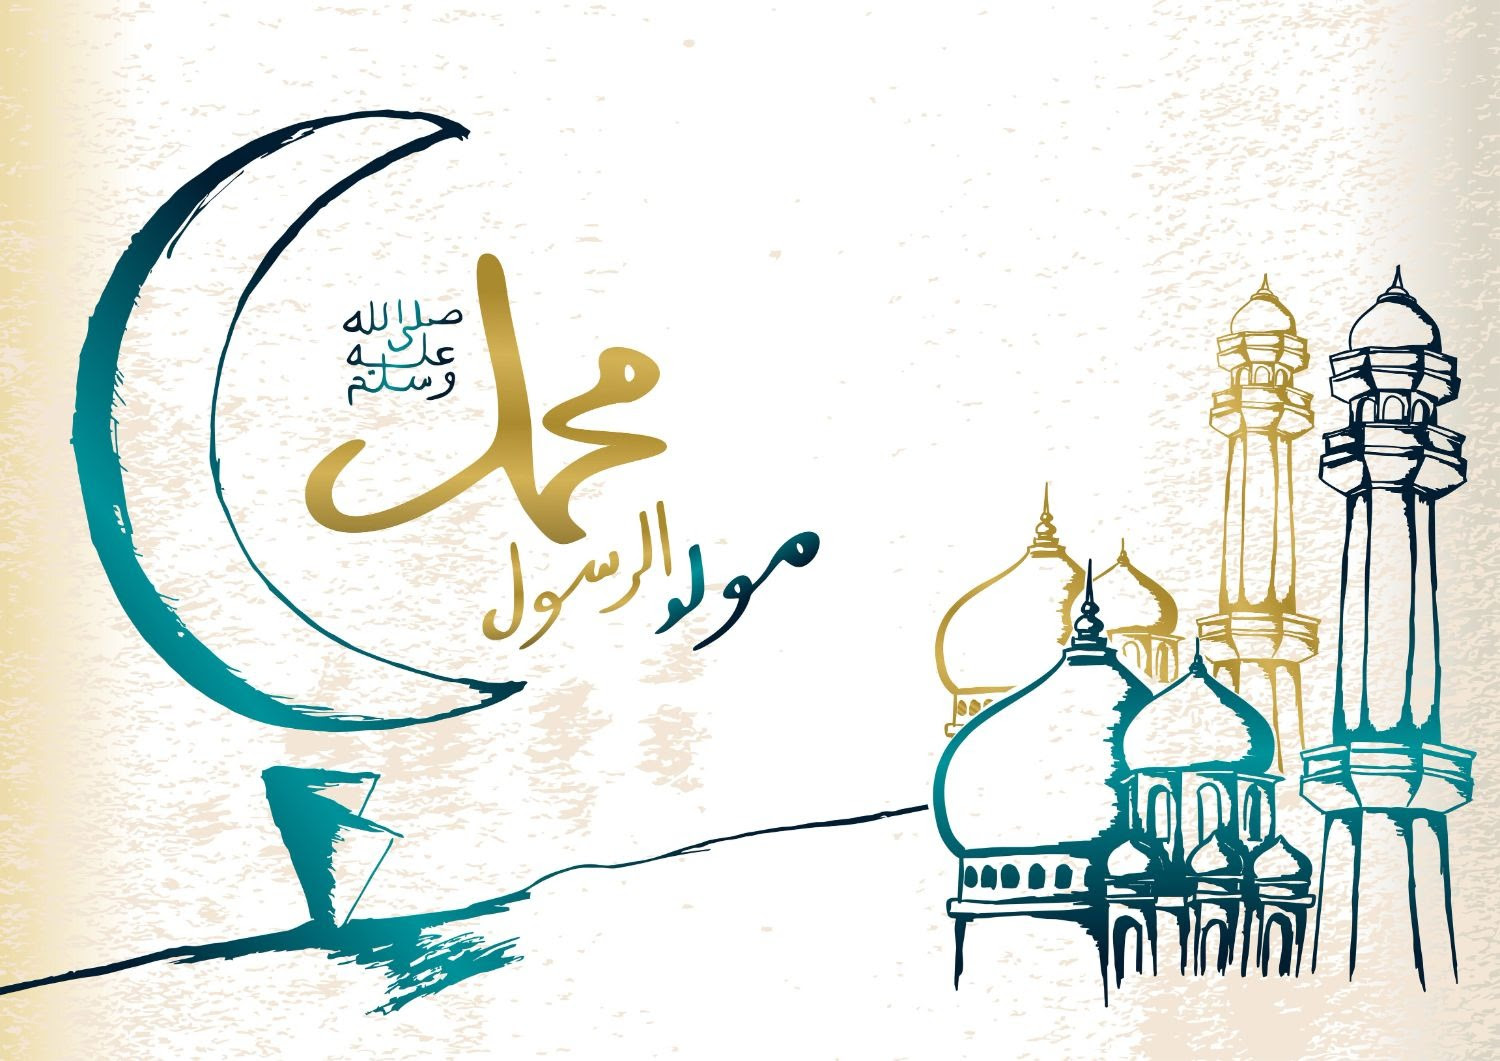 محمد
صلى الله
عليه
وسلم
مولد الرسول